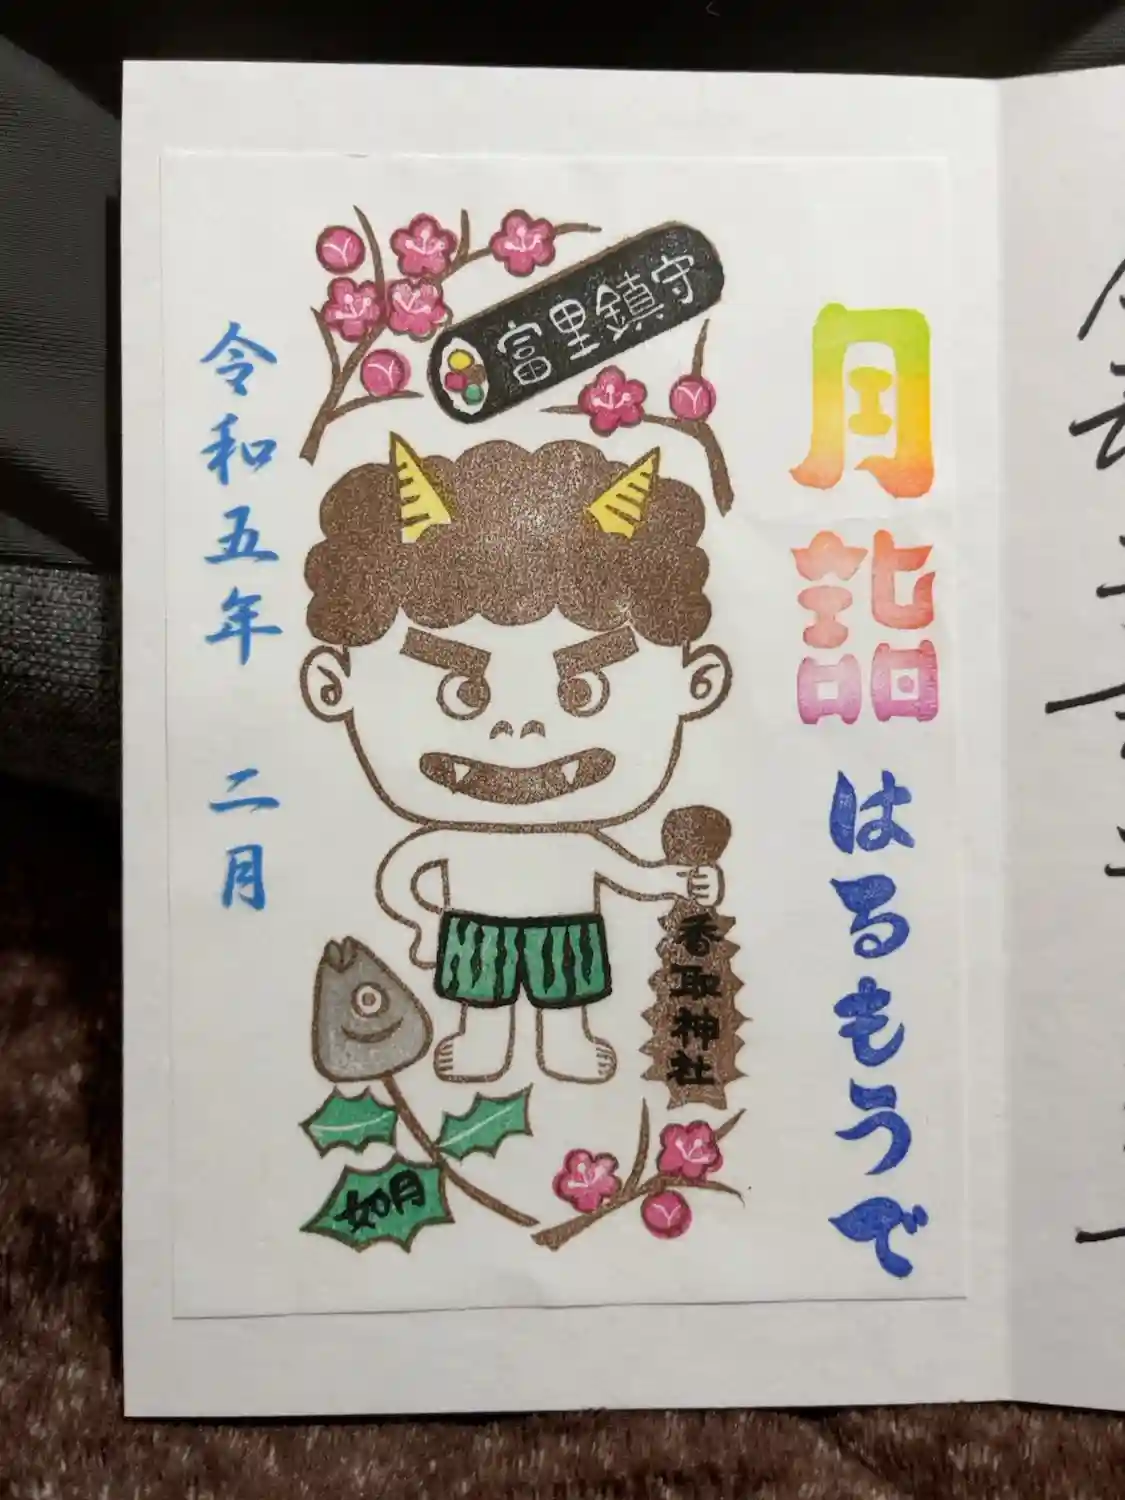 月詣
はるもうで
富里鎮守
香取神社
如月
令和五年 二月